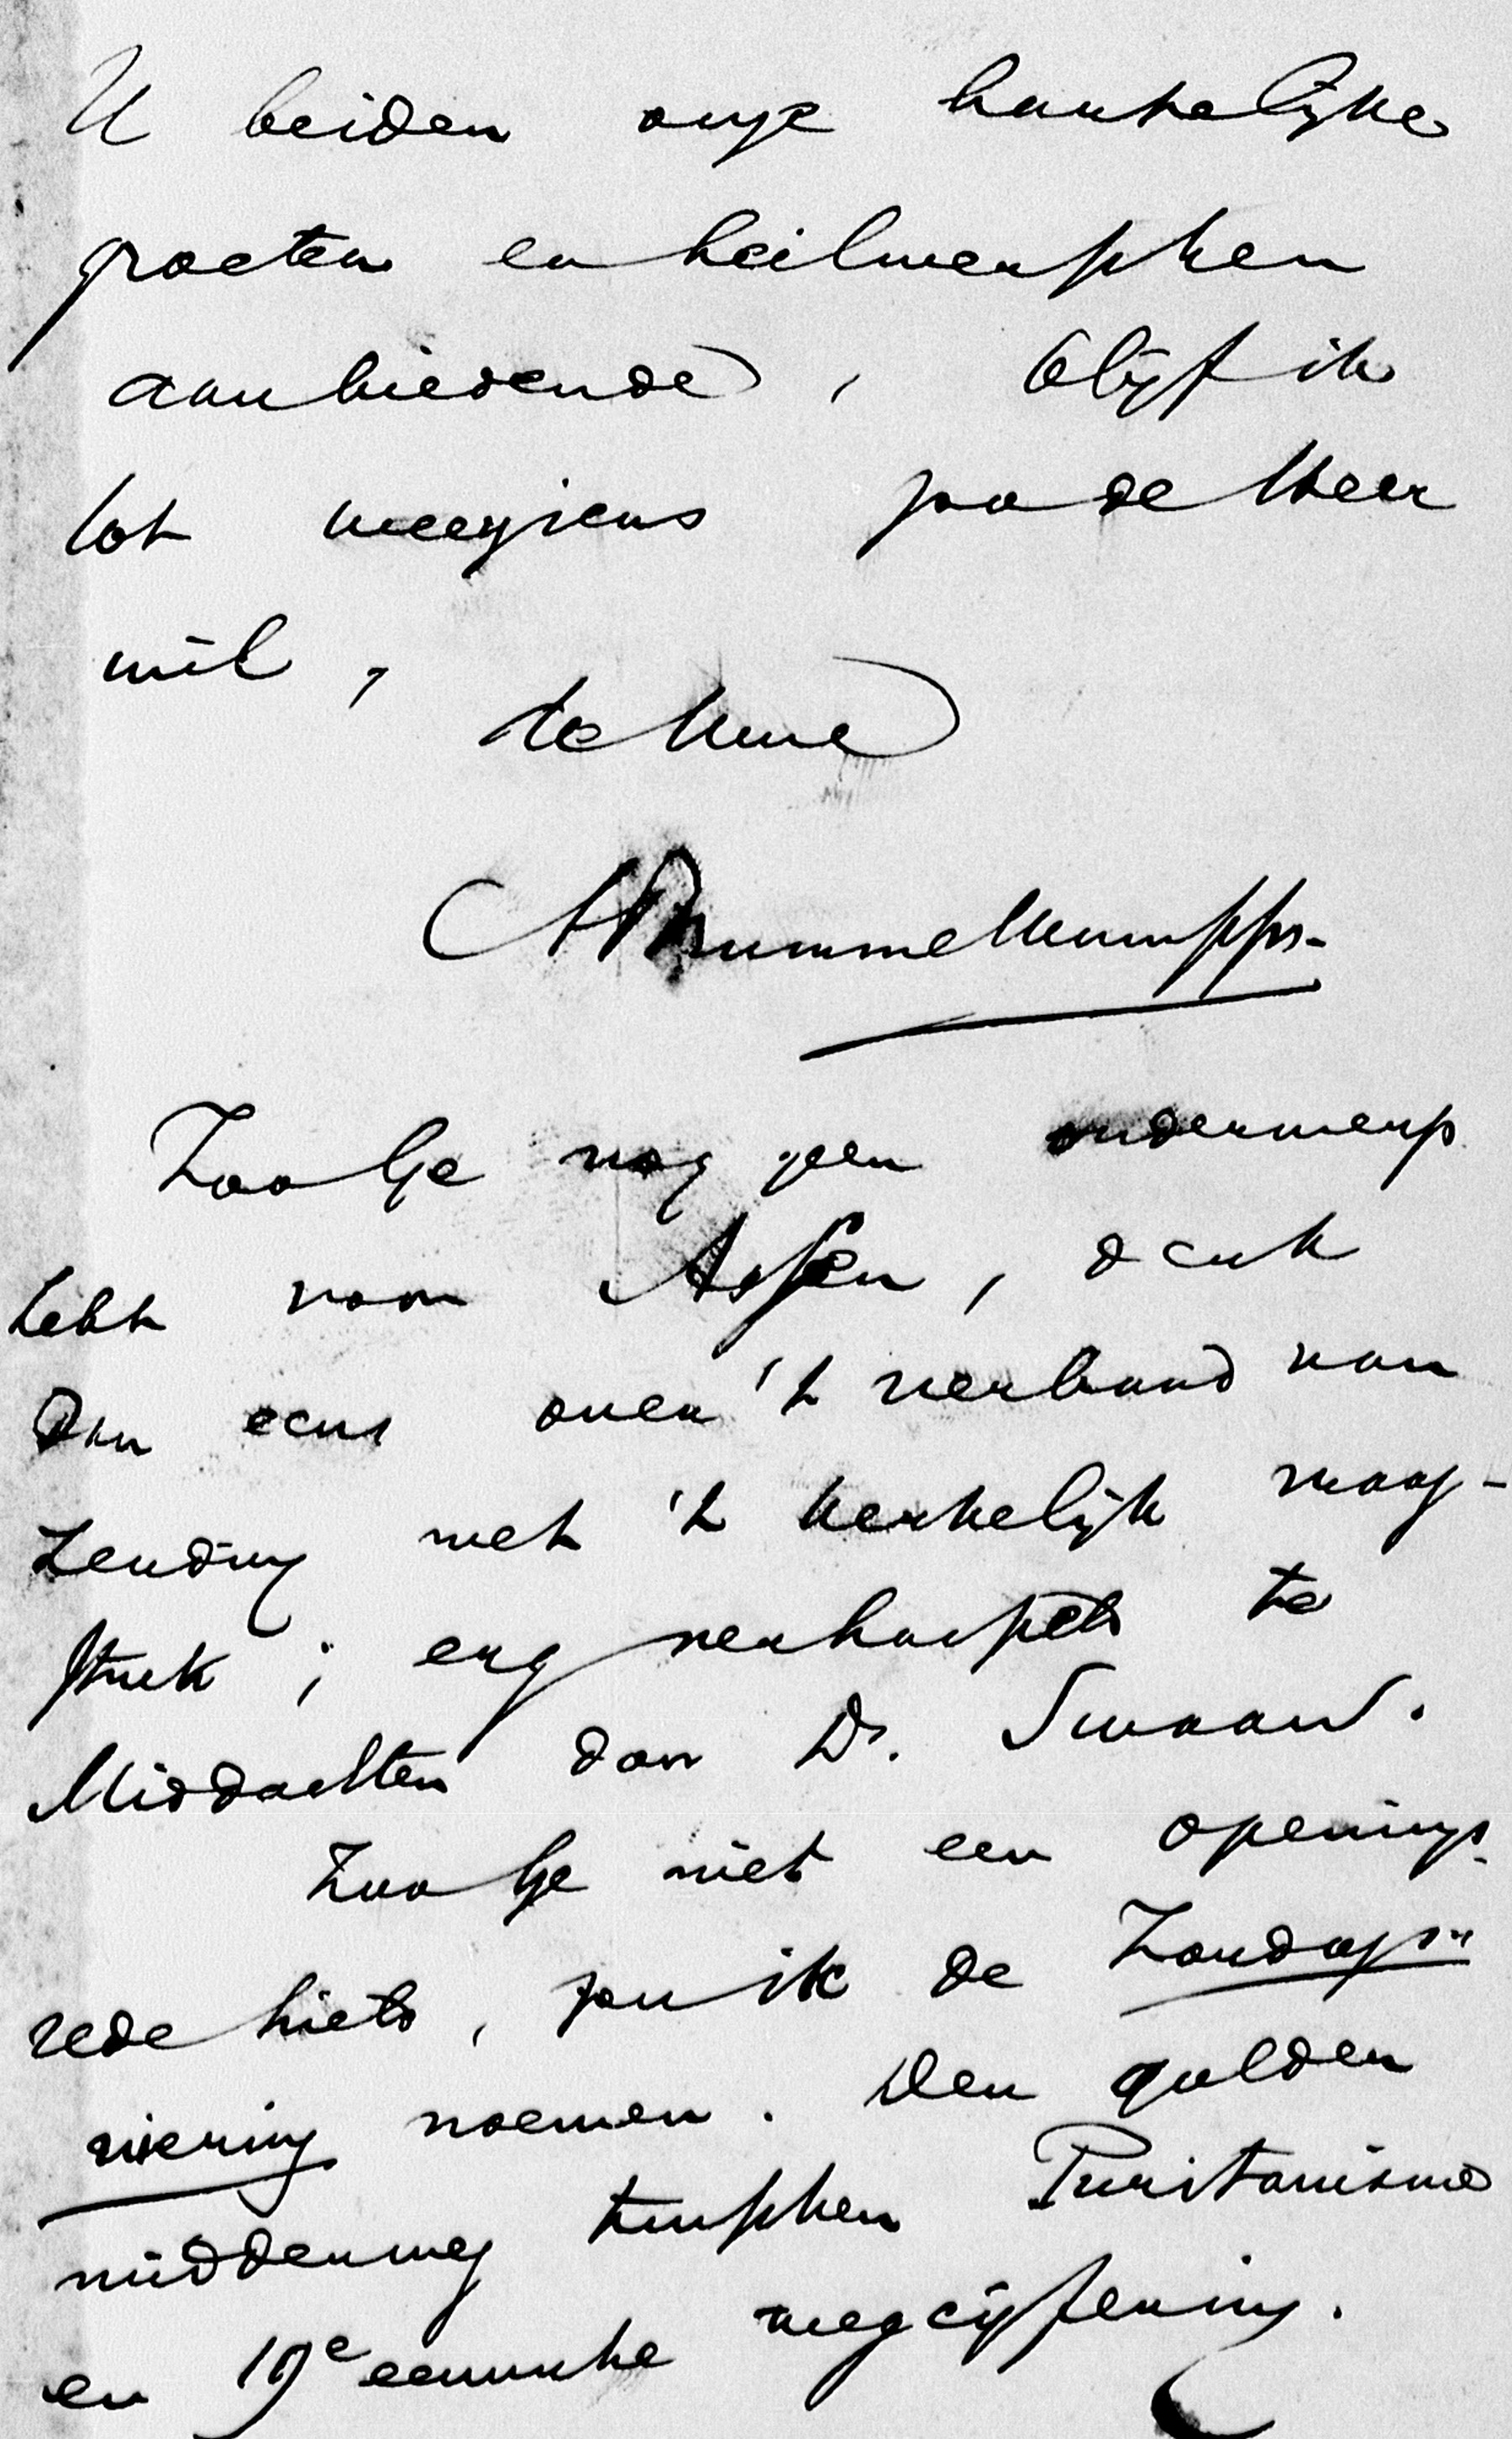 U beiden onze hartelijke
groeten en heilwenschen
aanbiedende, blijf ik
tot weerziens zoo de Heer
wil,
de Uwe
A Brummelkamp jr.
Zoo Ge nog geen onderwerp
hebt voor Assen, denk
dan eens over 't verband van
Zending met 't kerkelijk vraag-
stuk; erg verhaspeld te
Middachten door Dr.
Zoo Ge niet een openings-
rede hield, zou ik de Zondags-
viering noemen. Den gulden
middenweg tusschen Puritanisme
en 19e eeuwsche wegcijfering.